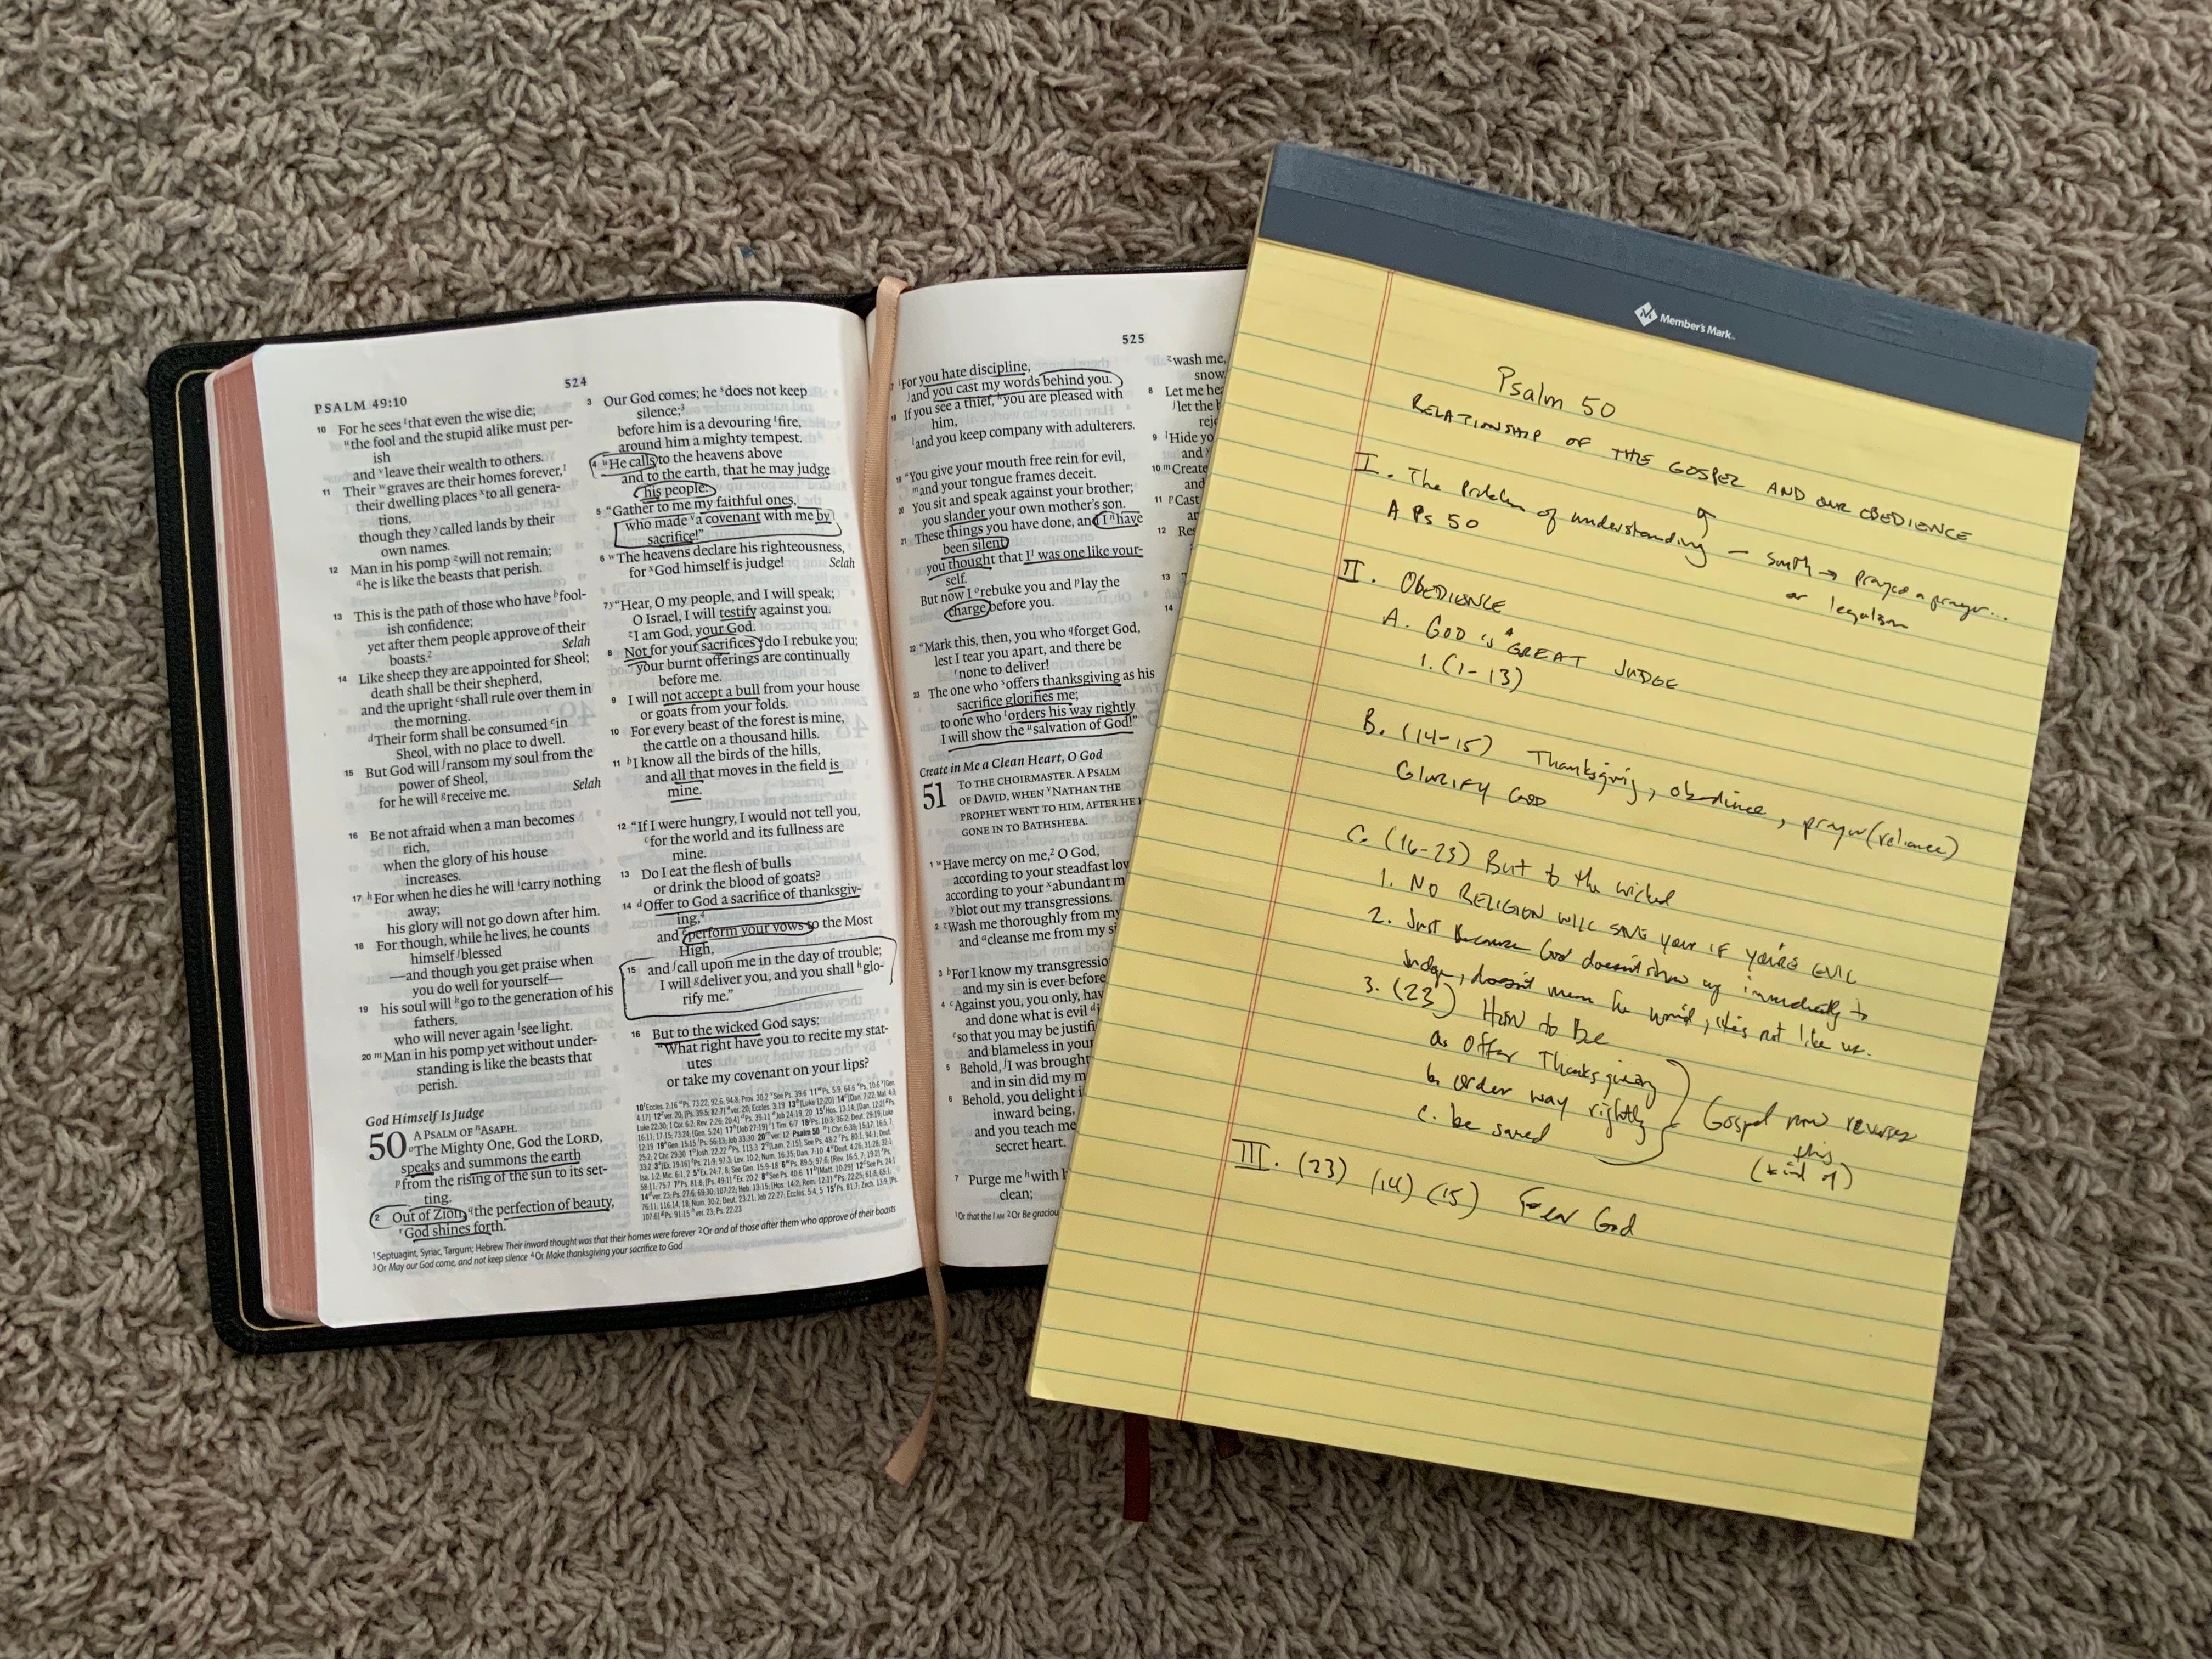 PSALM 49:10
524
10 For he sees that even the wise die;
the fool and the stupid alike must per-
ish
and leave their wealth to others.
11 Their graves are their homes forever,
their dwelling places to all genera-
tions,
though they called lands by their
own names.
12 Man in his pomp will not remain;
he is like the beasts that perish.
13 This is the path of those who have fool-
ish confidence;
yet after them people approve of their
boasts.2 Selah
14 Like sheep they are appointed for Sheol;
death shall be their shepherd,
and the upright shall rule over them in
the morning.
Their form shall be consumed in
Sheol, with no place to dwell.
15 But God will ransom my soul from the
power of Sheol,
for he will receive me. Selah
16 Be not afraid when a man becomes
rich,
when the glory of his house
increases.
17 For when he dies he will carry nothing
away;
his glory will not go down after him.
18 For though, while he lives, he counts
himself blessed
—and though you get praise when
you do well for yourself—
19 his soul will go to the generation of his
fathers,
who will never again see light.
20 Man in his pomp yet without under-
standing is like the beasts that
perish.
God Himself Is Judge
50 A PSALM OF ASAPH.
The Mighty One, God the LORD,
speaks and summons the earth
from the rising of the sun to its set-
ting.
2 Out of Zion, the perfection of beauty,
God shines forth.
3 Our God comes; he does not keep
silence;3
before him is a devouring fire,
around him a mighty tempest.
4 He calls to the heavens above
and to the earth, that he may judge
his people:
5 "Gather to me my faithful ones,
who made a covenant with me by
sacrifice!"
6 The heavens declare his righteousness,
for God himself is judge! Selah
7 "Hear, O my people, and I will speak;
O Israel, I will testify against you.
I am God, your God.
8 Not for your sacrifices do I rebuke you;
your burnt offerings are continually
before me.
9 I will not accept a bull from your house
or goats from your folds.
10 For every beast of the forest is mine,
the cattle on a thousand hills.
11 I know all the birds of the hills,
and all that moves in the field is
mine.
12 "If I were hungry, I would not tell you,
for the world and its fullness are
mine.
13 Do I eat the flesh of bulls
or drink the blood of goats?
14 Offer to God a sacrifice of thanksgiv-
ing,4
and perform your vows to the Most
High,
15 and call upon me in the day of trouble;
I will deliver you, and you shall glo-
rify me."
16 But to the wicked God says:
"What right have you to recite my stat-
utes
or take my covenant on your lips?
1 Septuagint, Syriac, Targum; Hebrew Their inward thought was that their homes were forever 2 Or and of those after them who approve of their boasts
3 Or May our God come, and not keep silence 4 Or Make thanksgiving your sacrifice to God
525
For you hate discipline,
and you cast my words behind you.
18 If you see a thief, you are pleased with
him,
and you keep company with adulterers.
19 "You give your mouth free rein for evil,
and your tongue frames deceit.
20 You sit and speak against your brother;
you slander your own mother's son.
21 These things you have done, and I have
been silent;
you thought that I was one like your-
self.
But now I rebuke you and lay the
charge before you.
22 "Mark this, then, you who forget God,
lest I tear you apart, and there be
none to deliver!
23 The one who offers thanksgiving as his
sacrifice glorifies me;
to one who orders his way rightly
I will show the salvation of God!"
Create in Me a Clean Heart, O God
51 TO THE CHOIRMASTER. A PSALM
OF DAVID, WHEN NATHAN THE
PROPHET WENT TO HIM, AFTER HE
GONE IN TO BATHSHEBA.
1 Have mercy on me,2 O God,
according to your steadfast lov
according to your abundant m
blot out my transgressions.
2 Wash me thoroughly from my
and cleanse me from my si
3 For I know my transgressio
and my sin is ever before
4 Against you, you only, hav
and done what is evil
so that you may be justifi
and blameless in your
5 Behold, I was brought
and in sin did my m
6 Behold, you delight i
inward being,
and you teach me
secret heart.
7 Purge me with h
clean;
1 Or that the I AM 2 Or Be graciou
wash me,
snow
8 Let me he
let the b
rejo
9 Hide yo
and
10 Create
and
11 Cast
an
12 Res
13
14
Member's Mark
Psalm 50
RELATIONSHIP OF THE GOSPEL AND OUR OBEDIENCE
I. The Problem of understanding — South → prayed a prayer...
or legalism
A Ps 50
II. OBEDIENCE
A. GOD is a GREAT JUDGE
1. (1-13)
B. (14-15) Thanksgiving, obedience, prayer (reliance)
GLORIFY GOD
C. (16-23) But to the wicked
1. NO RELIGION WILL SAVE YOUR IF YOU'RE EVIL
2. Just because God doesn't show up immediately to
judge, doesn't mean he won't, he's not like us.
3. (23) HOW to BE
a. Offer Thanksgiving
b. Order way rightly
c. be saved
Gospel now reverses
this
(kind of)
III. (23) (14) (15) Fear God